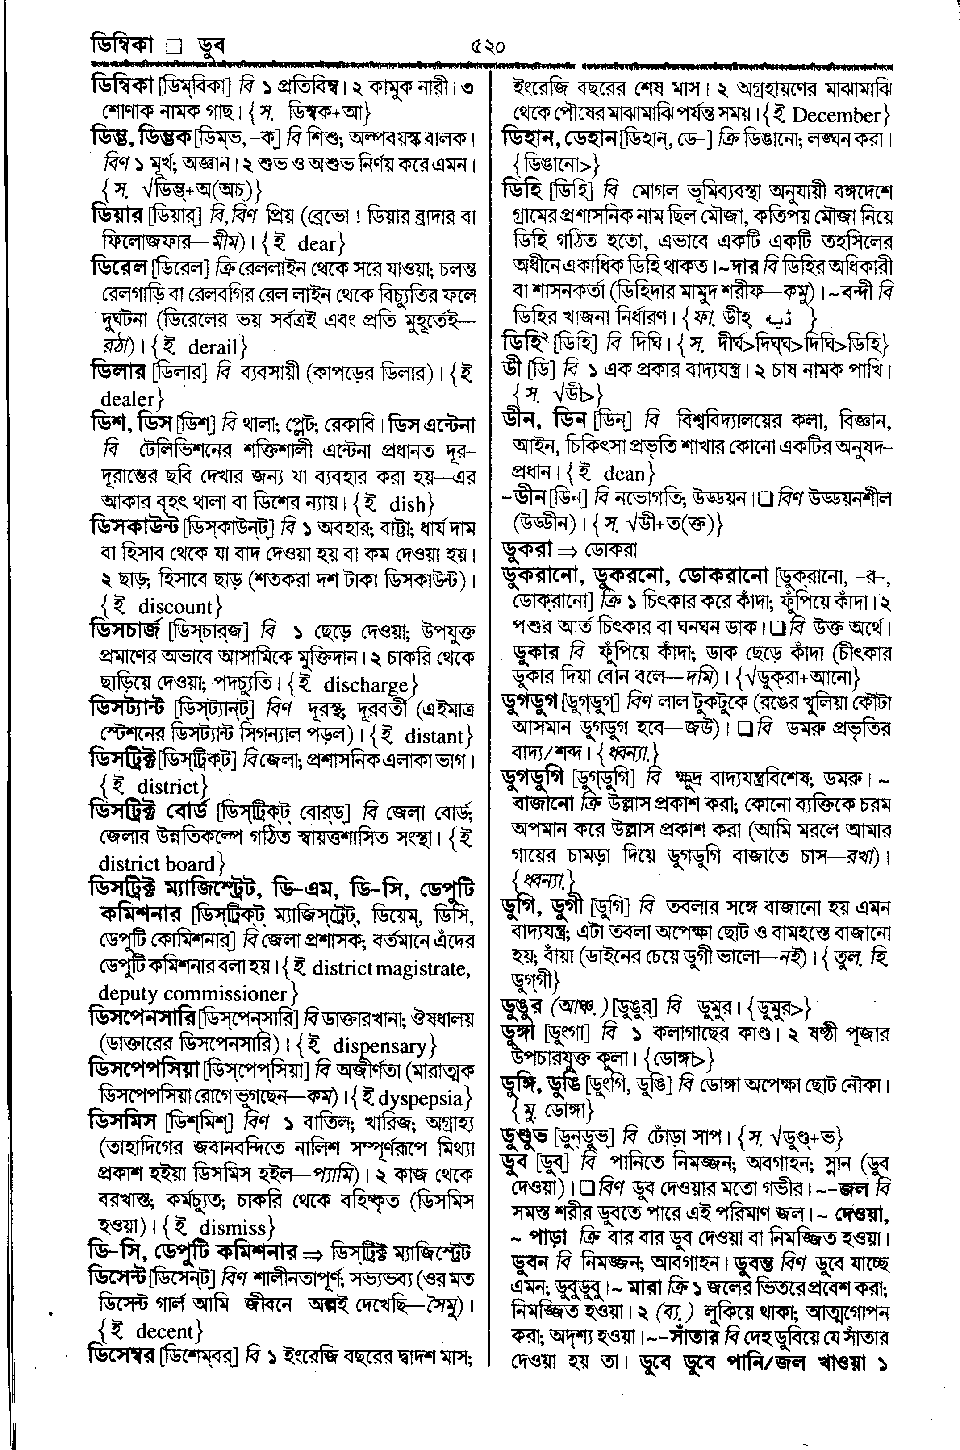 ডিম্বিকা □ ডুব
৫২০
ডিম্বিকা [ডিম্‌বিকা] বি ১ প্রতিবিম্ব। ২ কামুক নারী। ৩
শোণাক নামক গাছ। {স. ডিম্বক+আ}
ডিম্ভ, ডিম্ভক [ডিম্‌ভ, –ক] বি শিশু; অল্পবয়স্ক বালক।
বিণ ১ মূর্খ; অজ্ঞান। ২ শুভ ও অশুভ নির্ণয় করে এমন।
{স. √ডিম্ভ+অ(অচ)}
ডিয়ার [ডিয়ার্] বি, বিণ প্রিয় (ব্রেভো ! ডিয়ার ব্রাদার বা
ফিলোজফার—মীম)। {ই dear}
ডিরেল [ডিরেল্] ক্রি রেললাইন থেকে সরে যাওয়া; চলন্ত
রেলগাড়ি বা রেলবগির রেল লাইন থেকে বিচ্যুতির ফলে
দুর্ঘটনা (ডিরেলের ভয় সর্বত্রই এবং প্রতি মুহূর্তেই—
রঠা)। {ই derail}
ডিলার [ডিলার্] বি ব্যবসায়ী (কাপড়ের ডিলার)। {ই
dealer}
ডিশ, ডিস [ডিশ্] বি থালা; প্লেট; রেকাবি। ডিস এন্টেনা
বি টেলিভিশনের শক্তিশালী এন্টেনা প্রধানত দূর–
দূরান্তের ছবি দেখার জন্য যা ব্যবহার করা হয়—এর
আকার বৃহৎ থালা বা ডিশের ন্যায়। {ই dish}
ডিসকাউন্ট [ডিস্‌কাউন্‌ট্] বি ১ অবহার; বাট্টা; ধার্য দাম
বা হিসাব থেকে যা বাদ দেওয়া হয় বা কম দেওয়া হয়।
২ ছাড়; হিসাবে ছাড় (শতকরা দশ টাকা ডিসকাউন্ট)।
{ই discount}
ডিসচার্জ [ডিস্‌চার্‌জ্] বি ১ ছেড়ে দেওয়া; উপযুক্ত
প্রমাণের অভাবে আসামিকে মুক্তিদান। ২ চাকরি থেকে
ছাড়িয়ে দেওয়া; পদচ্যুতি। {ই discharge}
ডিসট্যান্ট [ডিস্‌ট্যান্‌ট্] বিণ দূরস্থ; দূরবর্তী (এইমাত্র
স্টেশনের ডিসট্যান্ট সিগন্যাল পড়ল)। {ই distant}
ডিসট্রিক্ট [ডিস্‌ট্রিক্‌ট্] বি জেলা; প্রশাসনিক এলাকা ভাগ।
{ই district}
ডিসট্রিক্ট বোর্ড [ডিস্‌ট্রিক্‌ট্ বোর্‌ড্] বি জেলা বোর্ড;
জেলার উন্নতিকল্পে গঠিত স্বায়ত্তশাসিত সংস্থা। {ই
district board}
ডিসট্রিক্ট ম্যাজিস্ট্রেট, ডি–এম, ডি–সি, ডেপুটি
কমিশনার [ডিস্‌ট্রিক্‌ট্ ম্যাজিস্‌ট্রেট্, ডিয়েম্, ডিসি,
ডেপুটি কোমিশনার্] বি জেলা প্রশাসক; বর্তমানে এঁদের
ডেপুটি কমিশনার বলা হয়। {ই district magistrate,
deputy commissioner}
ডিসপেনসারি [ডিস্‌পেন্‌সারি] বি ডাক্তারখানা; ঔষধালয়
(ডাক্তারের ডিসপেনসারি)। {ই dispensary}
ডিসপেপসিয়া [ডিস্‌পেপ্‌সিয়া] বি অজীর্ণতা (মারাত্মক
ডিসপেপসিয়া রোগে ভুগছেন—কম)। {ই dyspepsia}
ডিসমিস [ডিশ্‌মিশ্] বিণ ১ বাতিল; খারিজ; অগ্রাহ্য
(তাহাদিগের জবানবন্দিতে নালিশ সম্পূর্ণরূপে মিথ্যা
প্রকাশ হইয়া ডিসমিস হইল—প্যামি)। ২ কাজ থেকে
বরখাস্ত; কর্মচ্যুত; চাকরি থেকে বহিষ্কৃত (ডিসমিস
হওয়া)। {ই dismiss}
ডি–সি, ডেপুটি কমিশনার ⇒ ডিসট্রিক্ট ম্যাজিস্ট্রেট
ডিসেন্ট [ডিসেন্‌ট্] বিণ শালীনতাপূর্ণ; সভ্যভব্য (ওর মত
ডিসেন্ট গার্ল আমি জীবনে অল্পই দেখেছি—সৈমু)।
{ই decent}
ডিসেম্বর [ডিশেম্‌বর্] বি ১ ইংরেজি বছরের দ্বাদশ মাস;
ইংরেজি বছরের শেষ মাস। ২ অগ্রহায়ণের মাঝামাঝি
থেকে পৌষের মাঝামাঝি পর্যন্ত সময়। {ই December}
ডিহান, ডেহান [ডিহান্, ডে–] ক্রি ডিঙানো; লঙ্ঘন করা।
{ডিঙানো>}
ডিহি [ডিহি] বি মোগল ভূমিব্যবস্থা অনুযায়ী বঙ্গদেশে
গ্রামের প্রশাসনিক নাম ছিল মৌজা, কতিপয় মৌজা নিয়ে
ডিহি গঠিত হতো, এভাবে একটি একটি তহসিলের
অধীনে একাধিক ডিহি থাকত। ~দার বি ডিহির অধিকারী
বা শাসনকর্তা (ডিহিদার মামুদ শরীফ—কমু)। ~বন্দী বি
ডিহির খাজনা নির্ধারণ। {ফা. ডীহ }
ডিহি২ [ডিহি] বি দিঘি। {স. দীর্ঘ>দিগ্ঘ>দিঘি>ডিহি}
ডী [ডি] বি ১ এক প্রকার বাদ্যযন্ত্র। ২ চাষ নামক পাখি।
{স. √ডী>}
ডীন, ডিন [ডিন্] বি বিশ্ববিদ্যালয়ের কলা, বিজ্ঞান,
আইন, চিকিৎসা প্রভৃতি শাখার কোনো একটির অনুষদ–
প্রধান। {ই dean}
–ডীন [ডিন] বি নভোগতি; উড্ডয়ন। ❑ বিণ উড্ডয়নশীল
(উড্ডীন)। {স. √ডী+ত(ক্ত)}
ডুকরা ⇒ ডোকরা
ডুকরানো, ডুকরনো, ডোকরানো [ডুক্‌রানো, –র–,
ডোক্‌রানো] ক্রি ১ চিৎকার করে কাঁদা; ফুঁপিয়ে কাঁদা। ২
পশুর আর্ত চিৎকার বা ঘনঘন ডাক। ❑ বি উক্ত অর্থে।
ডুকার বি ফুঁপিয়ে কাঁদা; ডাক ছেড়ে কাঁদা (চীৎকার
ডুকার দিয়া বোন বলে—দমি)। {√ডুক্‌রা+আনো}
ডুগডুগ [ডুগ্‌ডুগ্] বিণ লাল টুকটুকে (রঙের খুলিয়া কৌটা
আসমান ডুগডুগ হবে—জউ)। ❑ বি ডমরু প্রভৃতির
বাদ্য/শব্দ। {ধ্বন্যা.}
ডুগডুগি [ডুগ্‌ডুগি] বি ক্ষুদ্র বাদ্যযন্ত্রবিশেষ; ডমরু। ~
বাজানো ক্রি উল্লাস প্রকাশ করা; কোনো ব্যক্তিকে চরম
অপমান করে উল্লাস প্রকাশ করা (আমি মরলে আমার
গায়ের চামড়া দিয়ে ডুগডুগি বাজাতে চাস—রখা)।
{ধ্বন্যা.}
ডুগি, ডুগী [ডুগি] বি তবলার সঙ্গে বাজানো হয় এমন
বাদ্যযন্ত্র; এটা তবলা অপেক্ষা ছোট ও বামহস্তে বাজানো
হয়; বাঁয়া (ডাইনের চেয়ে ডুগী ভালো—নই)। {তুল. হি.
ডুগ্‌গী}
ডুঙুর (আঞ্চ.) [ডুঙুর্] বি ডুমুর। {ডুমুর>}
ডুঙ্গা [ডুংগা] বি ১ কলাগাছের কাণ্ড। ২ ষষ্ঠী পূজার
উপচারযুক্ত কুলা। {ডোঙ্গা>}
ডুঙ্গি, ডুঙি [ডুংগি, ডুঙি] বি ডোঙ্গা অপেক্ষা ছোট নৌকা।
{মু ডোঙ্গা}
ডুণ্ডুভ [ডুন্‌ডুভ্] বি ঢোঁড়া সাপ। {স. √ডুণ্ড+ভ}
ডুব [ডুব্] বি পানিতে নিমজ্জন; অবগাহন; স্নান (ডুব
দেওয়া)। ❑ বিণ ডুব দেওয়ার মতো গভীর। ~–জল বি
সমস্ত শরীর ডুবতে পারে এই পরিমাণ জল। ~ দেওয়া,
~ পাড়া ক্রি বার বার ডুব দেওয়া বা নিমজ্জিত হওয়া।
ডুবন বি নিমজ্জন; অবগাহন। ডুবন্ত বিণ ডুবে যাচ্ছে
এমন; ডুবুডুবু। ~ মারা ক্রি ১ জলের ভিতরে প্রবেশ করা;
নিমজ্জিত হওয়া। ২ (ব্য.) লুকিয়ে থাকা; আত্মগোপন
করা; অদৃশ্য হওয়া। ~–সাঁতার বি দেহ ডুবিয়ে যে সাঁতার
দেওয়া হয় তা। ডুবে ডুবে পানি/জল খাওয়া ১